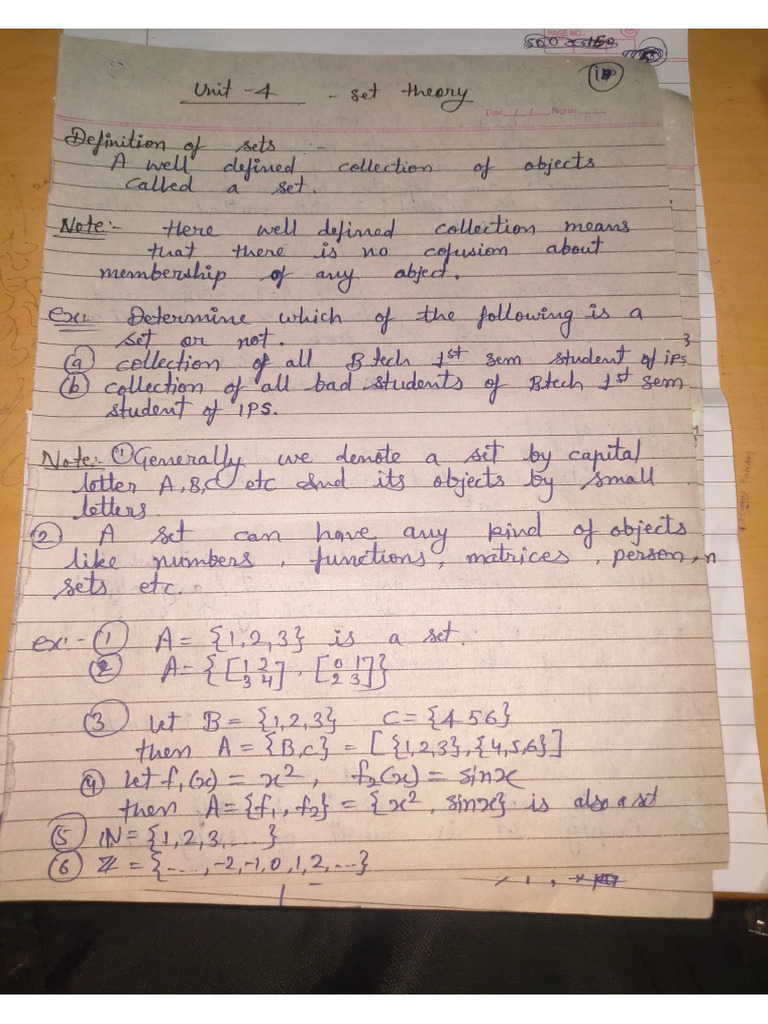 PAGE NO.:
Unit -4 - set theory
Date / /
Definition of sets :-
A well defined collection of objects
called a set.
Note:- Here well defined collection means
that there is no cofusion about
membership of any object.
ex:- Determine which of the following is a
set or not.
(a) collection of all B tech 1st sem student of IPS
(b) collection of all bad students of Btech 1st sem
student of IPS.
Note:- (1) Generally we denote a set by capital
lotter A, B, C etc and its objects by small
letters.
(2) A set can have any kind of objects
like numbers, functions, matrices, person,
sets etc.
ex:- (1) A = {1,2,3} is a set.
(2) A = {[1 2 3 4], [0 1 2 3]}
(3) Let B = {1,2,3} C = {4 5 6}
then A = {B,C} = [{1,2,3}, {4,5,6}]
(4) Let f₁(x) = x², f₂(x) = sinx
then A = {f₁, f₂} = {x², sinx} is also a set
(5) ℕ = {1,2,3,....}
(6) ℤ = {....,-2,-1,0,1,2,...}